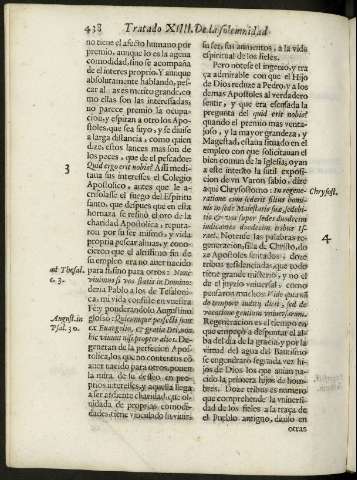 438 Tratado XIIII. De la solemnidad
no tiene el afecto humano por
premio, aunque lo es la agena
comodidad, sino se acompaña
de el interes proprio. Y aunque
absolutamente hablando, pes-
car al aves merito grande, co
mo ellas son las interesadas,
no parece premio la ocupa-
cion, y espiran a otro los Apo-
stoles, que sea suyo, y se divise
a larga distancia, como quien
dize, estos lances mas son de
los peces, que de el pescador:
3
Quid ergo erit nobis? Assi medi-
taua sus intereses el Colegio
Apostolico, antes que le a-
crisolasse el fuego del Espiritu
santo, que despues que en esta
hornaza se refinò el oro de la
charidad Apostolica, reputa-
ron por su ser mismo, y vida
propria pescar almas, y cono-
cieron que el altissimo fin de
su empleo era no aver nacido
ad Thesal.
c. 3.
para si, sino para otros: Nunc
vivimus si vos statis in Domino:
deria Pablo a los de Tesaloni-
ca, mi vida consiste en vuestra
Fè, y ponderandolo Augustino
August. in
Psal. 30.
glosso:
ex Euangelio, ex gratia Dei, non
sibi vivunt, sed propter alios. De-
generan de la perfecion Apos-
tolica, los que no contentos có
auer nacido para otros, ponen
la mira de su desseo en pro-
prios intereses, y aquella llega
a ser ardiente charidad, que ol-
vidada de proprias comodi-
dades, tiene vinculado su vivir,
su ser, sus aumentos, a la vida
espiritual de los fieles.
Pero notese el ingenio, y tra
ça admirable con que el Hijo
de Dios reduze a Pedro, y a los
demas Apostoles al verdadero
sentir, y que era escusada la
pregunta del quid erit nobis?
quando el premio mas venta-
joso, y la mayor grandeza, y
Magestad, estaua situado en el
empleo con que solicitauan el
bien comun de la Iglesia, oyan
a este intento la sutil exposi-
cion de vn Varon sabio, dize
Chrysost.
aqui Chrysostomo: In regene-
ratione cum sederit filius homi-
nis in sede Maiestatis suæ, sedebi-
tis & vos super sedes duodecim
iudicantes duodecim tribus Is-
4
rael. Notense las palabras re-
generacion, silla de Christo, do
ze Apostoles sentados, doze
tribus residenciadas, que todo
tiene grande misterio, y no es
el de el juyzio vniuersal, como
pensaron muchos:
de tempore iudicij dicat, sed de
vocatione gentium vniuersarum.
Regeneracion es el tiempo en
que empeçò a despuntar el al-
ba del dia de la gracia, y por la
virtud del agua del Bautismo
se engendrò segunda vez hi-
jos de Dios los que auian na-
cido la primera hijos de hom-
bres. Doze tribus es numero
que comprehende la vniuersi-
dad de los fieles a la traça de
el Pueblo antiguo, diuiso en
otras